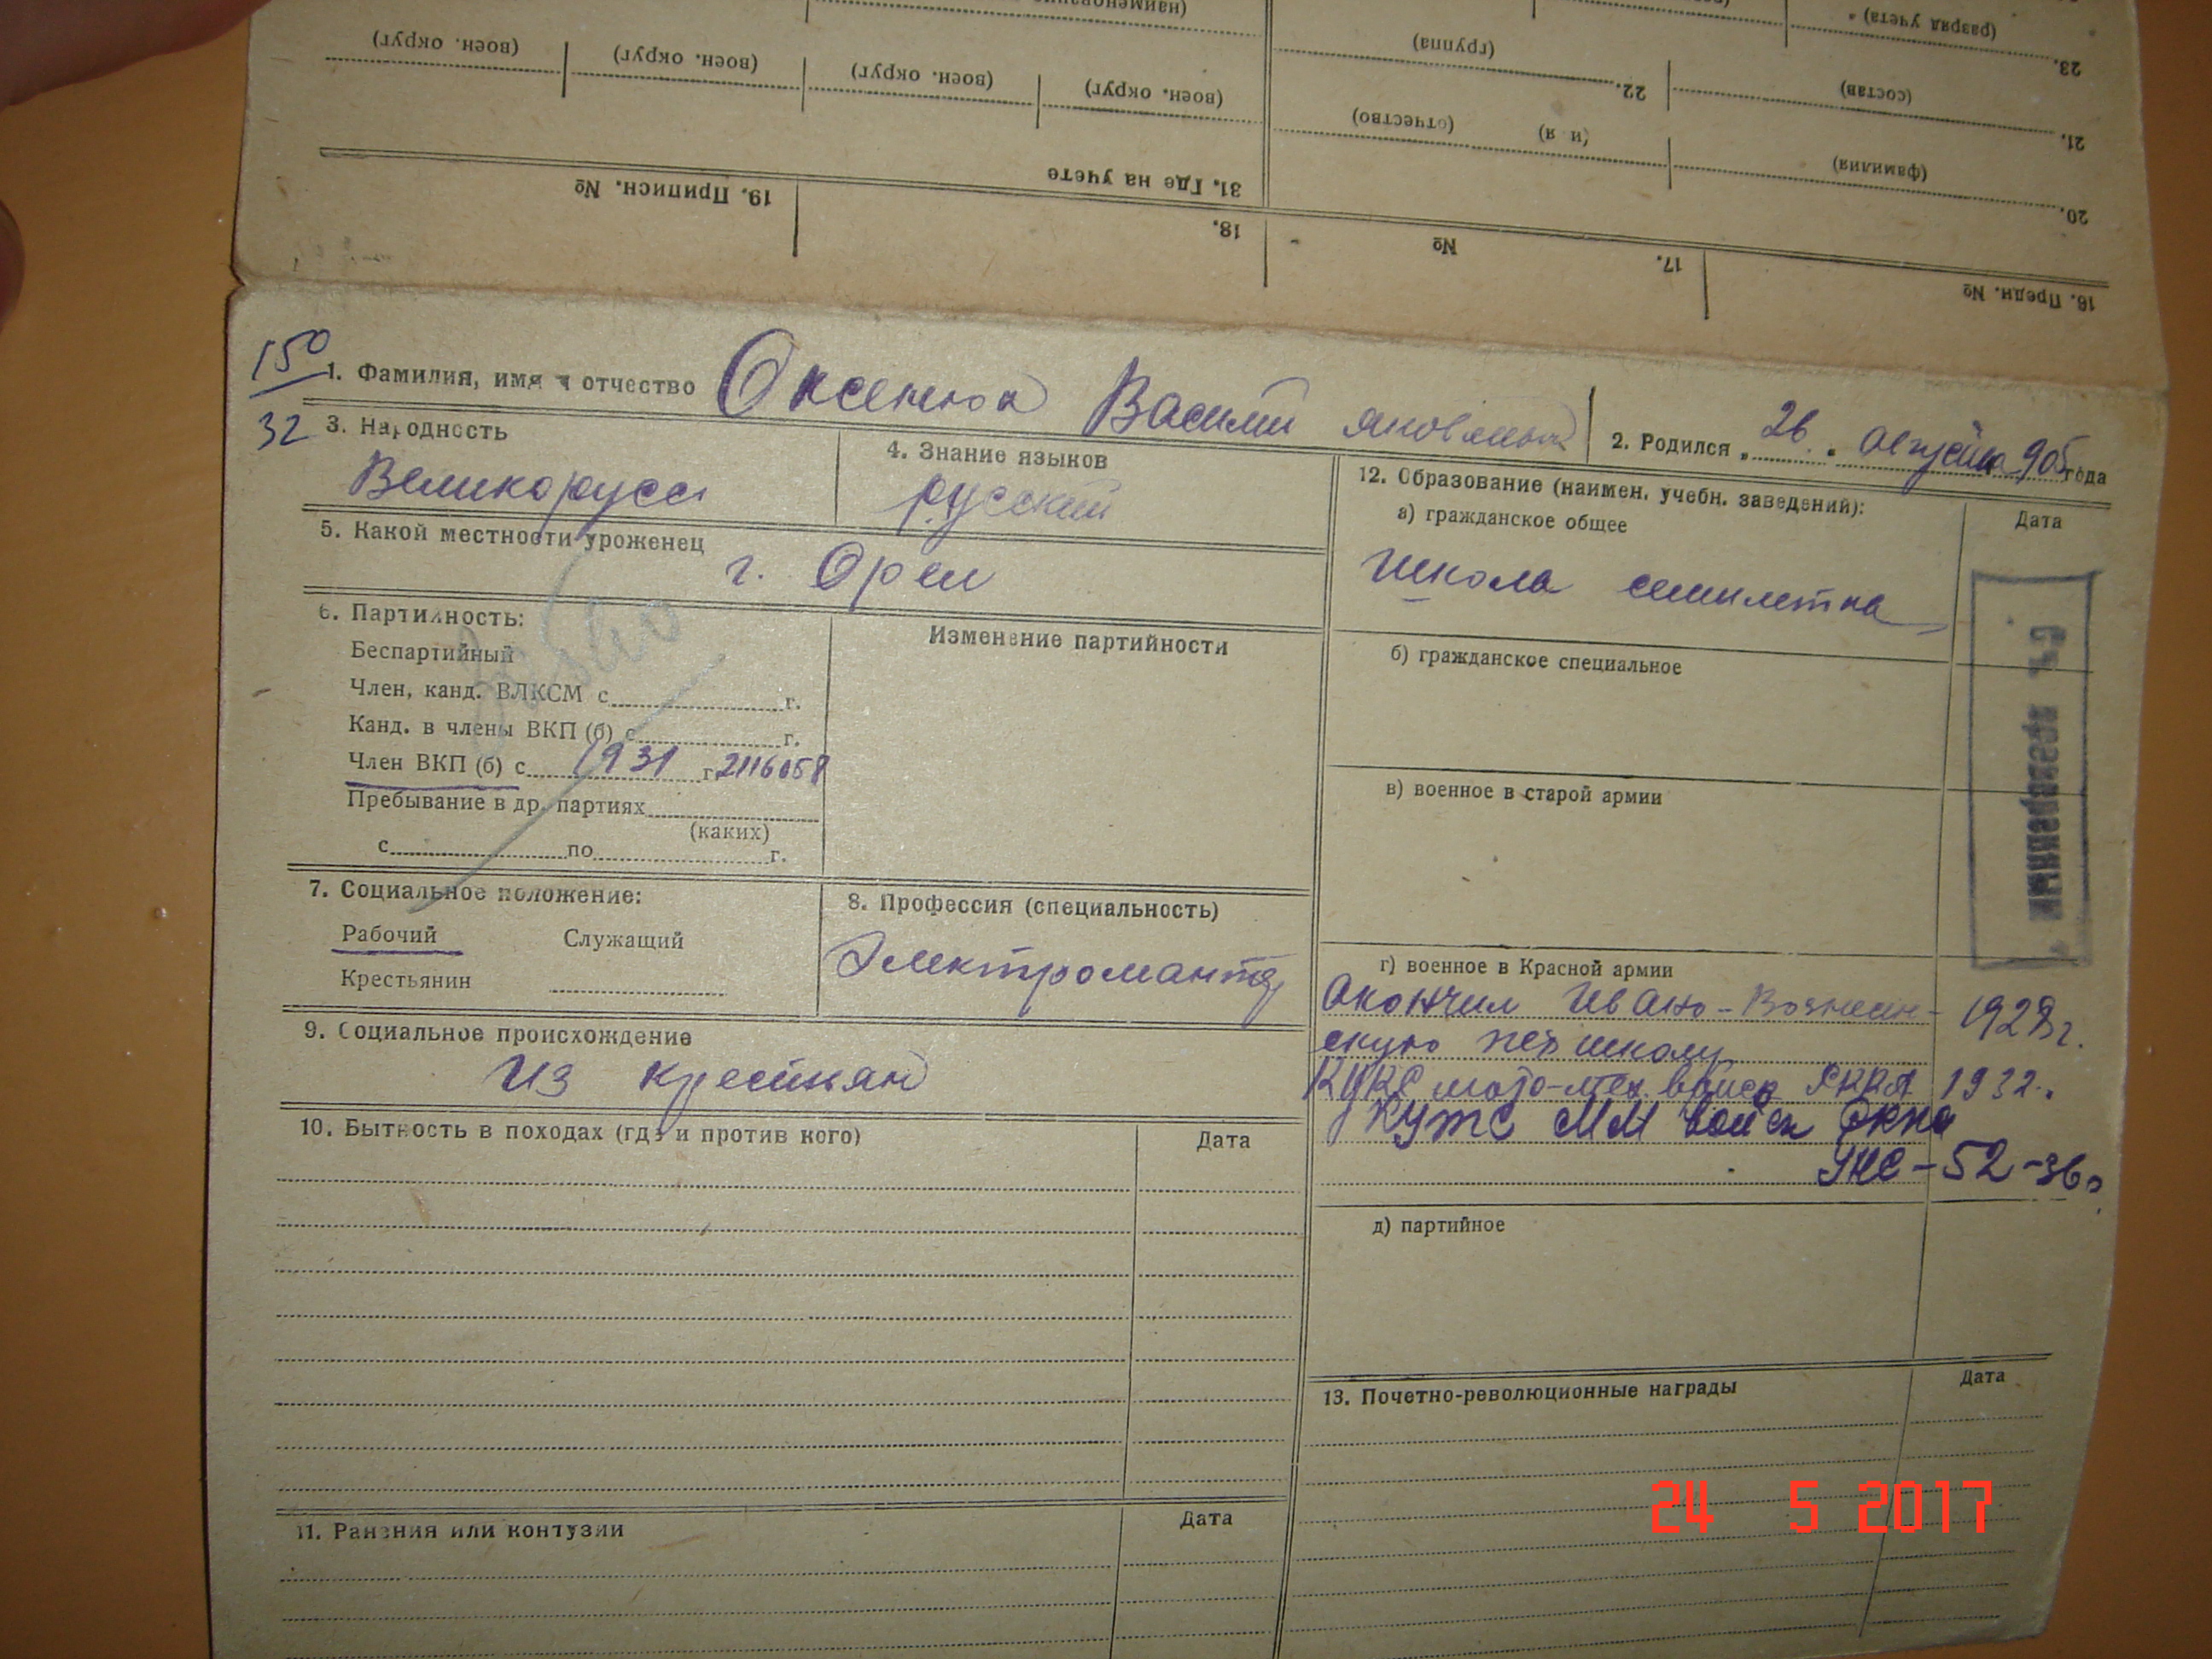 (воен. округ) (воен. округ) (воен. округ) (воен. округ)
(группа)
(разряд учета)
23.
22.
(состав)
21.
(отчество) (фамилия)
20.
19. Приписн. № 31. Где на учете
18. № 17. 16. Предн. №
150
32
1. Фамилия, имя и отчество Оксенюк Василий Яковлевич 2. Родился „26“ Августа 905 года
3. Народность
Великорусс
4. Знание языков
русский
5. Какой местности уроженец
г. Орел
6. Партийность:
Беспартийный
Член, канд. ВЛКСМ с г.
Канд. в члены ВКП (б) с г.
Член ВКП (б) с 1931 г. 2116058
Пребывание в др. партиях
(каких)
с по г.
Изменение партийности
7. Социальное положение:
Рабочий Служащий
Крестьянин
8. Профессия (специальность)
Электромантер
9. Социальное происхождение
Из крестьян
10. Бытность в походах (где и против кого) Дата
11. Ранения или контузии Дата
12. Образование (наимен. учебн. заведений): Дата
а) гражданское общее
Школа семилетка
б) гражданское специальное
в) военное в старой армии
г) военное в Красной армии
Окончил Ивано-Вознесен- 1928 г.
скую школу
КУКС мото-мех. войск РККА 1932.
КУТС ММ войск РККА
52-36
д) партийное
13. Почетно-революционные награды Дата
24 5 2017